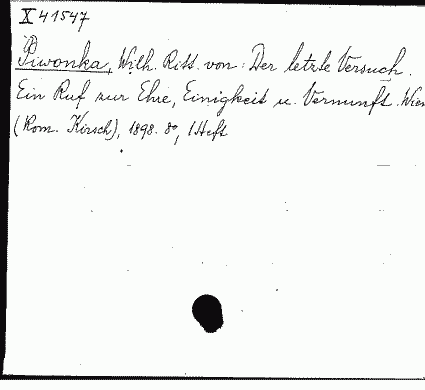 X 41547
Piwonka, Wilh. Ritt. von: Der letzte Versuch.
Ein Ruf zur Ehre, Einigkeit u. Vernunft. Wien
(Rom. Kirsch), 1898. 8°, 1 Heft